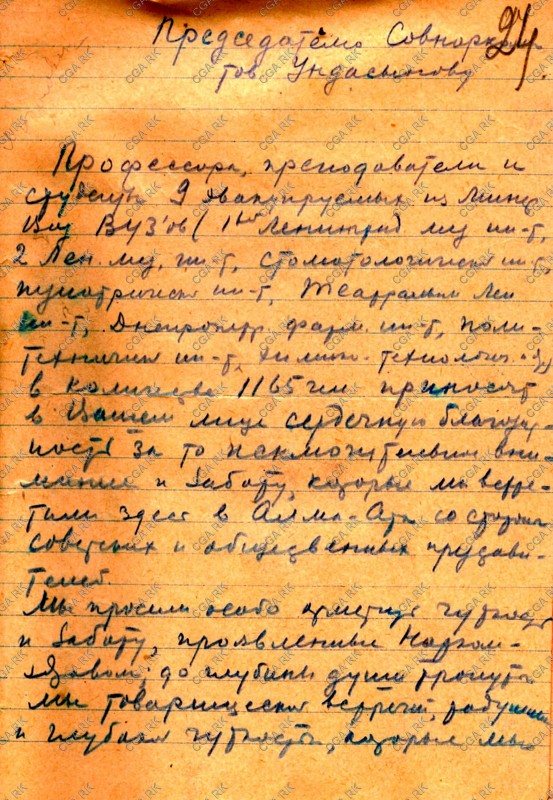 24.
Председателю Совнаркома
тов Ундасынову
Профессора, преподаватели и
студенты 9 эвакуируемых из Мине
Вод ВУЗ'ов (1ый Ленинград мед ин-т,
2 Лен. мед. ин-т, стоматологически ин-т
педиатрически ин-т, Театральн Лен
ин-т, Днепропетр. фарм. ин-т, поли-
технически ин-т, химико-технологич.
в количестве 1165 чел приносят
в Вашем лице сердечную благодар-
ность за то исключительное вни-
мание и заботу, которые мы встре-
тили здесь в Алма-Ата со стороны
советских и общественных представи-
телей.
Мы просим особо отметить чуткость
и заботу, проявленные Нарком-
здравом. до глубины души тронуты
мы товарищеской встречей, радушием
и глубокой чуткостью, которые мы